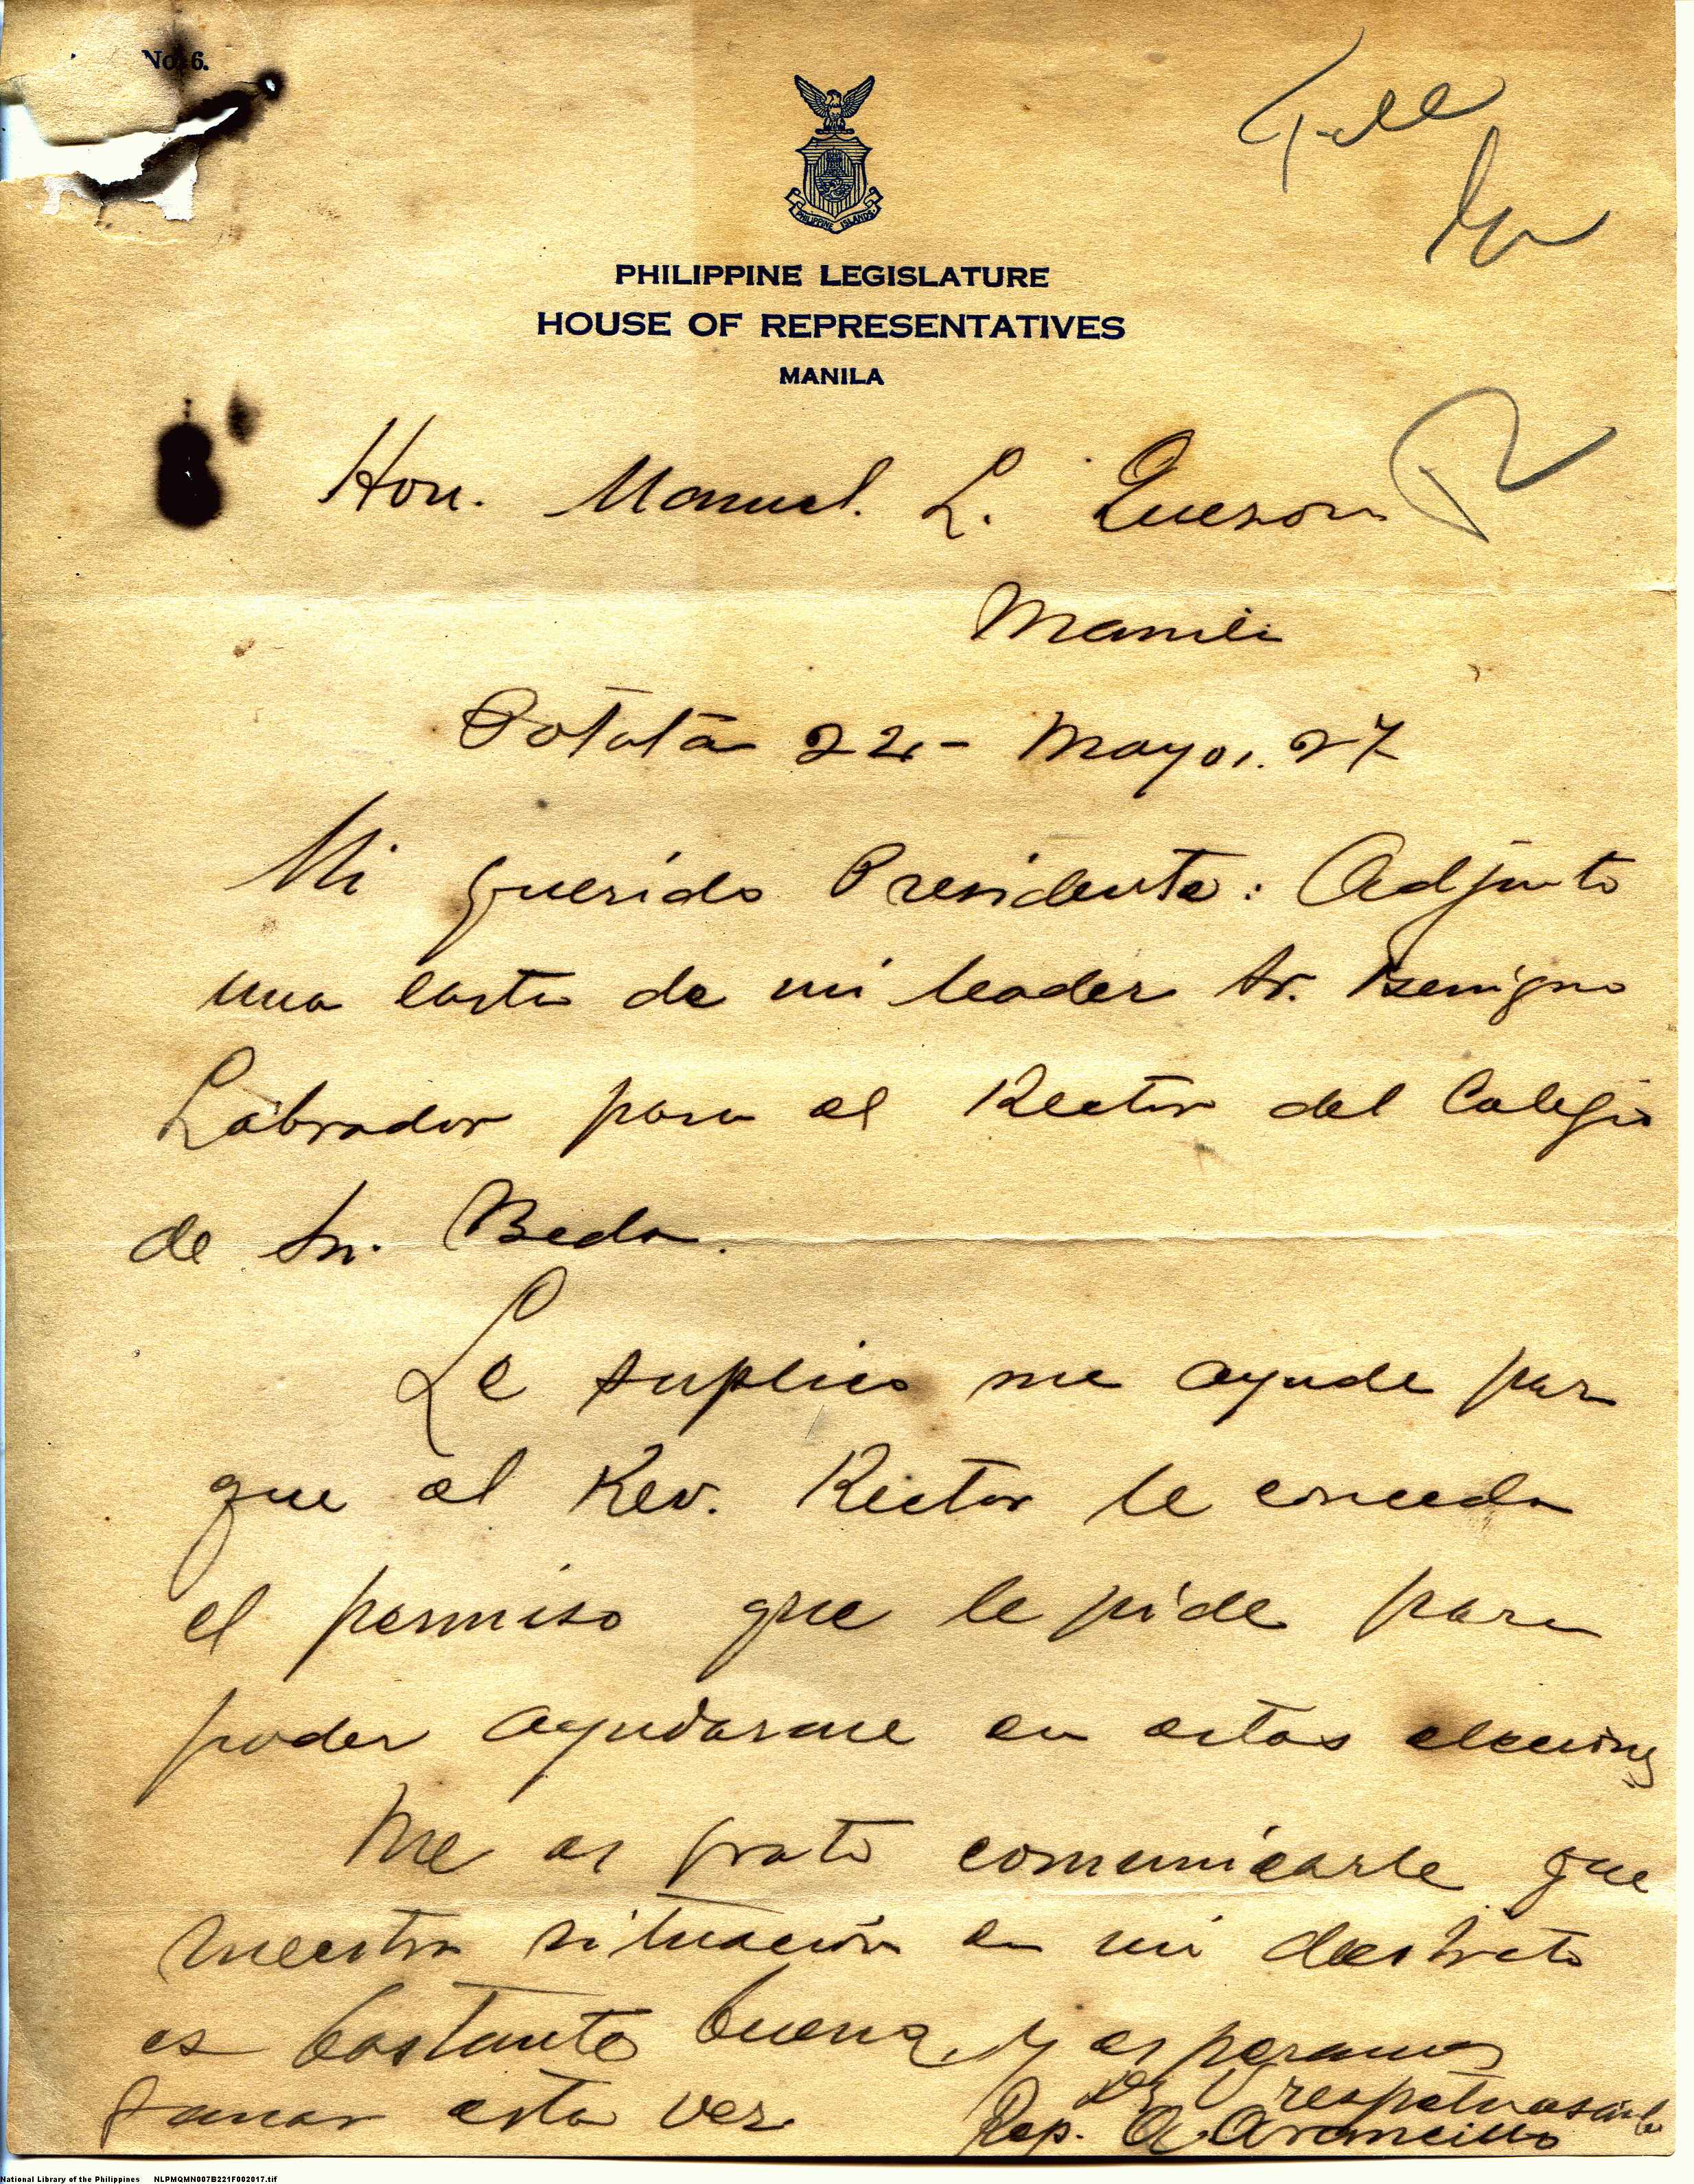 No. 6.
PHILIPPINE ISLANDS
PHILIPPINE LEGISLATURE
HOUSE OF REPRESENTATIVES
MANILA
Hon. Manuel. L. Quezon
Manila
Pototan 22- Mayo, 27
Mi querido Presidente: Adjunto
una carta de mi leader Sr. Benigno
Labrador para el Rector del Colegio
de Sn. Beda.
Le suplico me ayude para
que el Rev. Rector le conceda
el permiso que le pide para
poder ayudarme en estas elecciones
Me es grato comunicarle que
nuestra situación en mi distrito
es bastante buena, y esperamos
ganar esta vez.
respetuosamente
Rep. A.
National Library of the Philippines NLPMQMN007B221F002017.tif